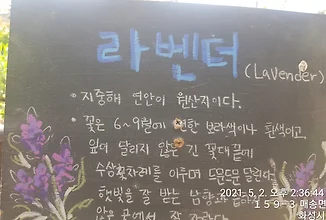 라벤더
(Lavender)
• 지중해 연안이 원산지이다.
• 꽃은 6~9월에 연한 보라색이나 흰색이고,
잎이 달리지 않은 긴 꽃대 끝에
수상꽃차례를 이루며 드문드문 달린다.
햇빛을 잘 받는 남향과
2021. 5. 2. 오후 2:36:44
159-3 매송면
화성시